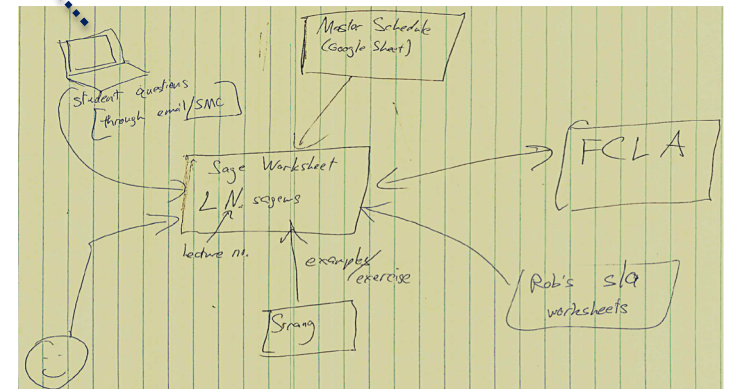 Master Schedule
(Google Sheet)
student questions
through email/SMC
FCLA
Sage Worksheet
LN.sagews
lecture no.
examples/
exercise
Strang
Rob's sla
worksheets